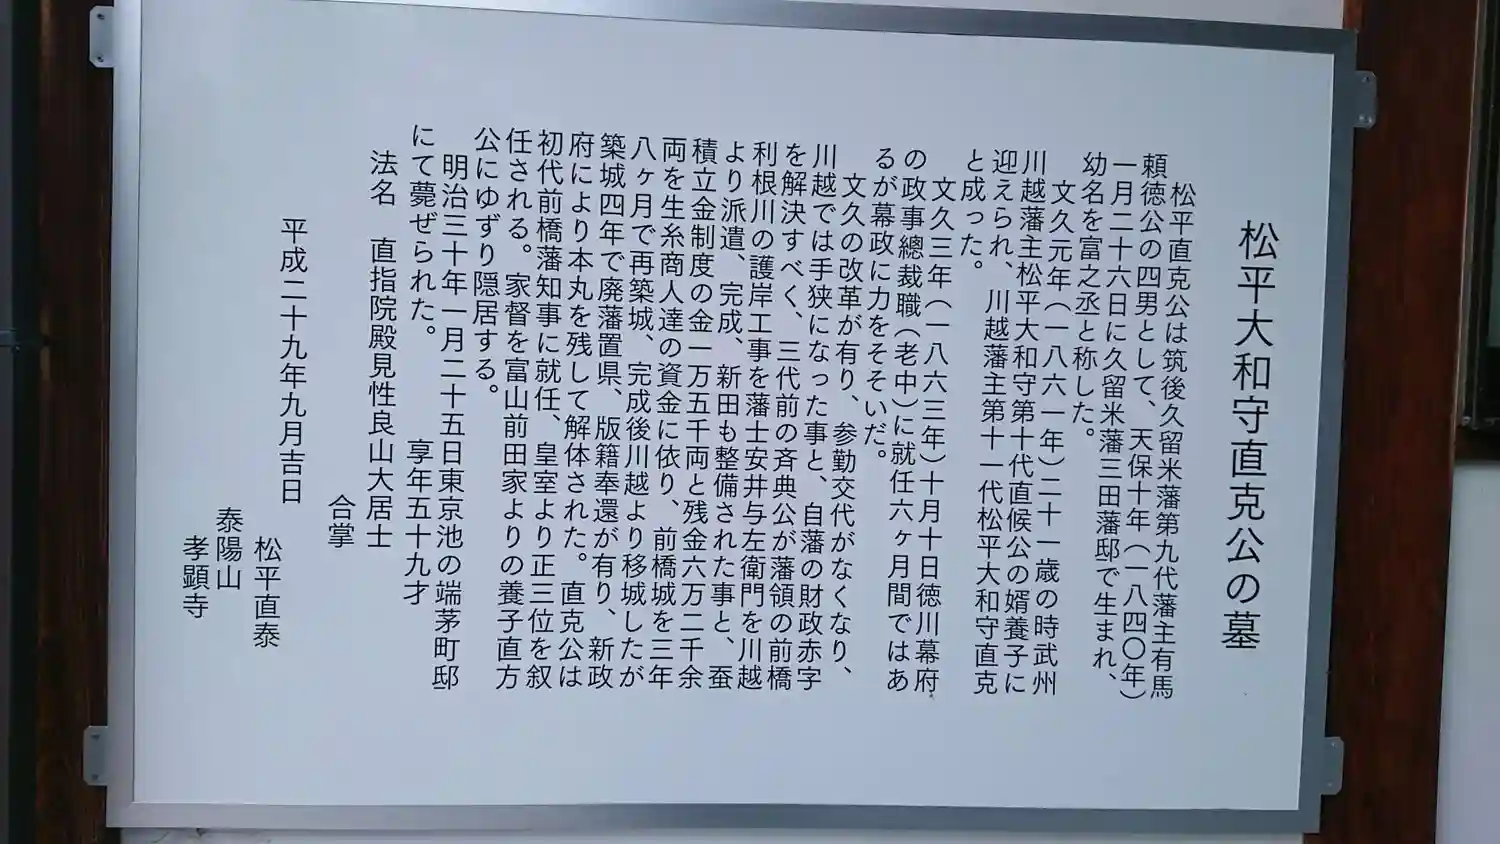 松平大和守直克公の墓
松平直克公は筑後久留米藩第九代藩主有馬
頼徳公の四男として、天保十年（一八四〇年）
一月二十六日に久留米藩三田藩邸で生まれ、
幼名を富之丞と称した。
文久元年（一八六一年）二十一歳の時武州
川越藩主松平大和守第十代直候公の婿養子に
迎えられ、川越藩主第十一代松平大和守直克
と成った。
文久三年（一八六三年）十月十日徳川幕府
の政事總裁職（老中）に就任六ヶ月間ではあ
るが幕政に力をそそいだ。
文久の改革が有り、参勤交代がなくなり、
川越では手狭になった事と、自藩の財政赤字
を解決すべく、三代前の斉典公が藩領の前橋
利根川の護岸工事を藩士安井与左衛門を川越
より派遣、完成、新田も整備された事と、蚕
積立金制度の金一万五千両と残金六万二千余
両を生糸商人達の資金に依り、前橋城を三年
八ヶ月で再築城、完成後川越より移城したが
築城四年で廃藩置県、版籍奉還が有り、新政
府により本丸を残して解体された。直克公は
初代前橋藩知事に就任、皇室より正三位を叙
任される。家督を富山前田家よりの養子直方
公にゆずり隠居する。
明治三十年一月二十五日東京池の端茅町邸
にて薨ぜられた。　享年五十九才
法名　直指院殿見性良山大居士
合掌
平成二十九年九月吉日
松平直泰
泰陽山
孝顕寺